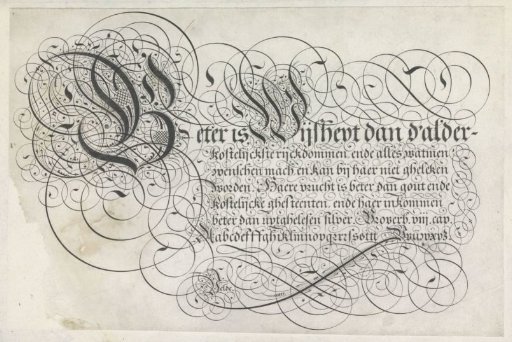 Beter is Wijsheyt dan d'alder-
kostelijckste rijckdommen, ende alles watmen
wenschen mach en kan bij haer niet gheleken
worden. Haere vrucht is beter dan gout ende
kostelijcke ghesteenten, ende haer inkommen
beter dan uytghelesen silver. Proverb. viij. cap.
Aabcdeffghiklmnopqrrsſstu Vvuwxyz
Velde